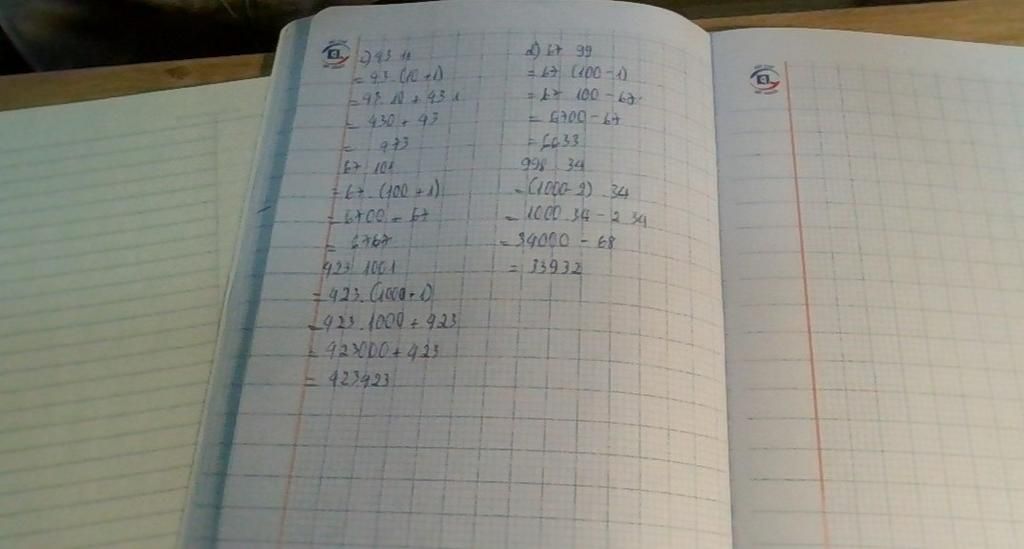 c) 43 11
= 43 . (10 + 1)
= 43 . 10 + 43 1
= 430 + 43
= 473
67 101
= 67 . (100 + 1)
= 6700 + 67
= 6767
423 1001
= 423 . (1000 + 1)
= 423 . 1000 + 423
= 423000 + 423
= 423423
d) 67 99
= 67 (100 - 1)
= 67 100 - 67
= 6700 - 67
= 6633
998 34
= (1000 - 2) . 34
= 1000 34 - 2 34
= 34000 - 68
= 33932